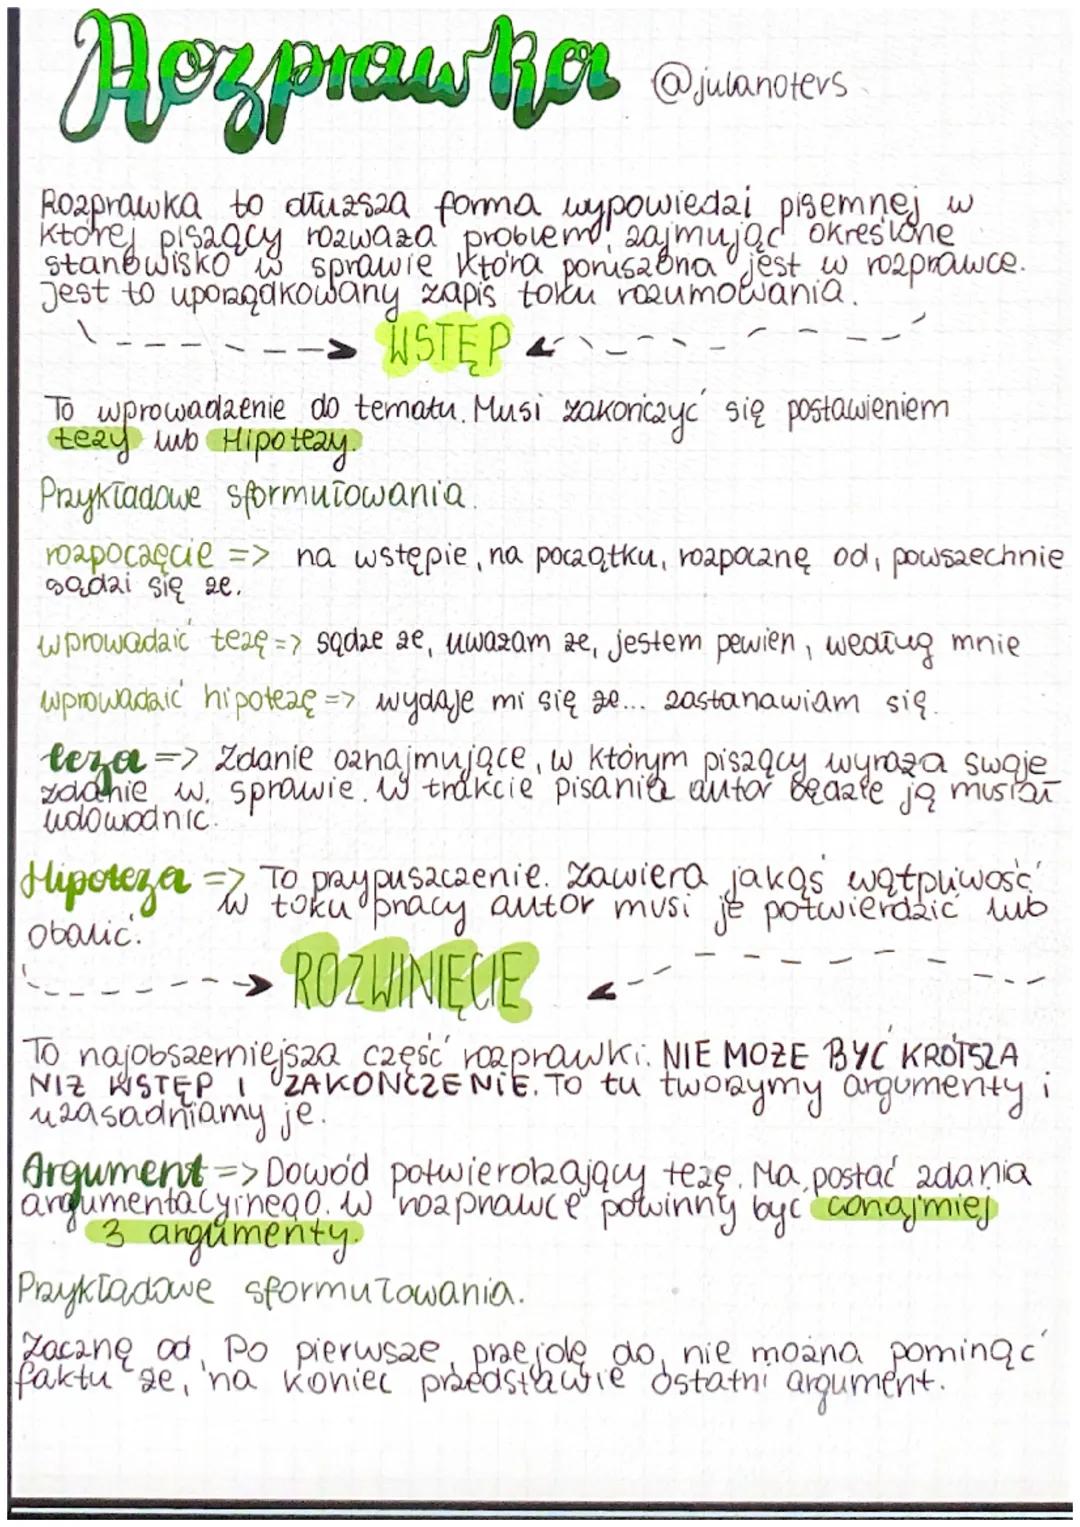 Rozprawka @julanoters
Rozprawka to dłuższa forma wypowiedzi pisemnej w
której piszący rozważa problem, zajmując określone
stanowisko w sprawie która poruszona jest w rozprawce.
Jest to uporządkowany zapis toku rozumowania.
WSTĘP
To wprowadzenie do tematu. Musi zakończyć się postawieniem
tezy lub Hipotezy.
Przykładowe sformułowania.
rozpoczęcie => na wstępie, na początku, rozpocznę od, powszechnie
sądzi się że.
wprowadzić tezę => sądze że, uważam że, jestem pewien, według mnie
wprowadzić hipotezę => wydaje mi się że... zastanawiam się.
teza => Zdanie oznajmujące, w którym piszący wyraża swoje
zdanie w. sprawie. W trakcie pisania autor będzie ją musiał
udowodnić.
Hipoteza => To przypuszczenie. Zawiera jakąś wątpliwość
W toku pracy autor musi je potwierdzić lub
obalić.
ROZWINIĘCIE
To najobszerniejsza część rozprawki. NIE MOŻE BYĆ KRÓTSZA
NIŻ WSTĘP I ZAKOŃCZENIE. To tu tworzymy argumenty i
uzasadniamy je.
Argument => Dowód potwierdzający tezę. Ma postać zdania
argumentacyjnego. W rozprawce powinny być conajmiej
3 argumenty.
Przykładowe sformułowania.
Zacznę od, Po pierwsze, przejdę do, nie można pominąć
faktu że, na koniec przedstawie ostatni argument.